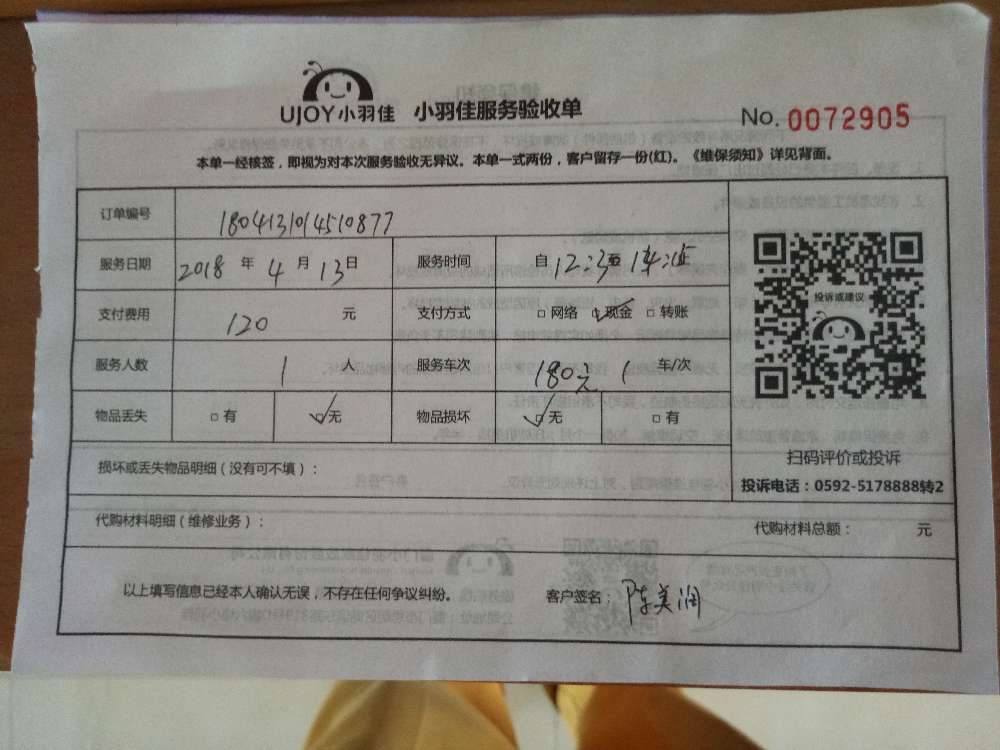 UJOY小羽佳 小羽佳服务验收单
No. 0072905
本单一经核签，即视为对本次服务验收无异议。本单一式两份，客户留存一份(红)。《维保须知》详见背面。
订单编号 180413014510877
服务日期 2018 年 4 月 13 日 服务时间 自 12:3 至
支付费用 120 元 支付方式 □ 网络 ☑ 现金 □ 转账
服务人数 1 人 服务车次 180元 1 车/次
物品丢失 □ 有 ☑ 无 物品损坏 ☑ 无 □ 有
投诉或建议
扫码评价或投诉
投诉电话：0592-5178888转2
损坏或丢失物品明细（没有可不填）：
代购材料明细（维修业务）： 代购材料总额： 元
以上填写信息已经本人确认无误，不存在任何争议纠纷。 客户签名：陈美润